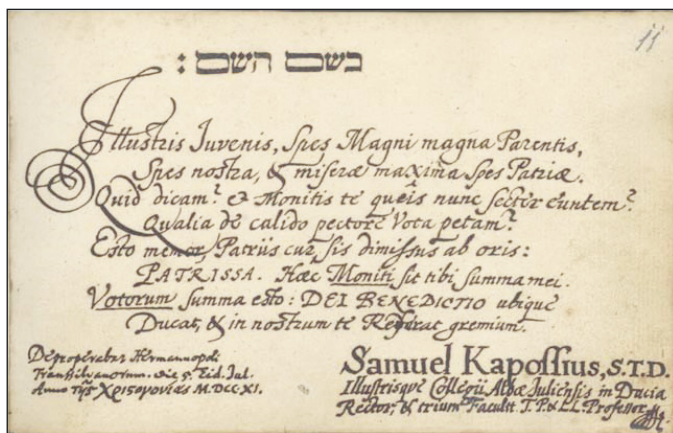 11
בשם השם :
Illustris Juvenis, Spes Magni magna Parentis,
Spes nostra, & miseræ maxima Spes Patriæ.
Quid dicam? & Monitis te queîs nunc secter euntem?
Qualia de calido pectore Vota petam?
Esto memor, Patriis cur sis dimissus ab oris:
PATRISSA. Hæc Moniti sit tibi summa mei.
Votorum summa esto: DEI BENEDICTIO ubique
Ducat, & in nostrum te Referat gremium.
Hermannopoli
Transsilvanorum. die 5. Eid. Jul.
Anno τῆς Χριστογονίας M.DCC.XI.
Samuel Kapossius, S.T.D.
Illustrisque Collegii Albæ Juliensis in Dacia
Rector, & trium Facultt. T.P. & L.L. Professor